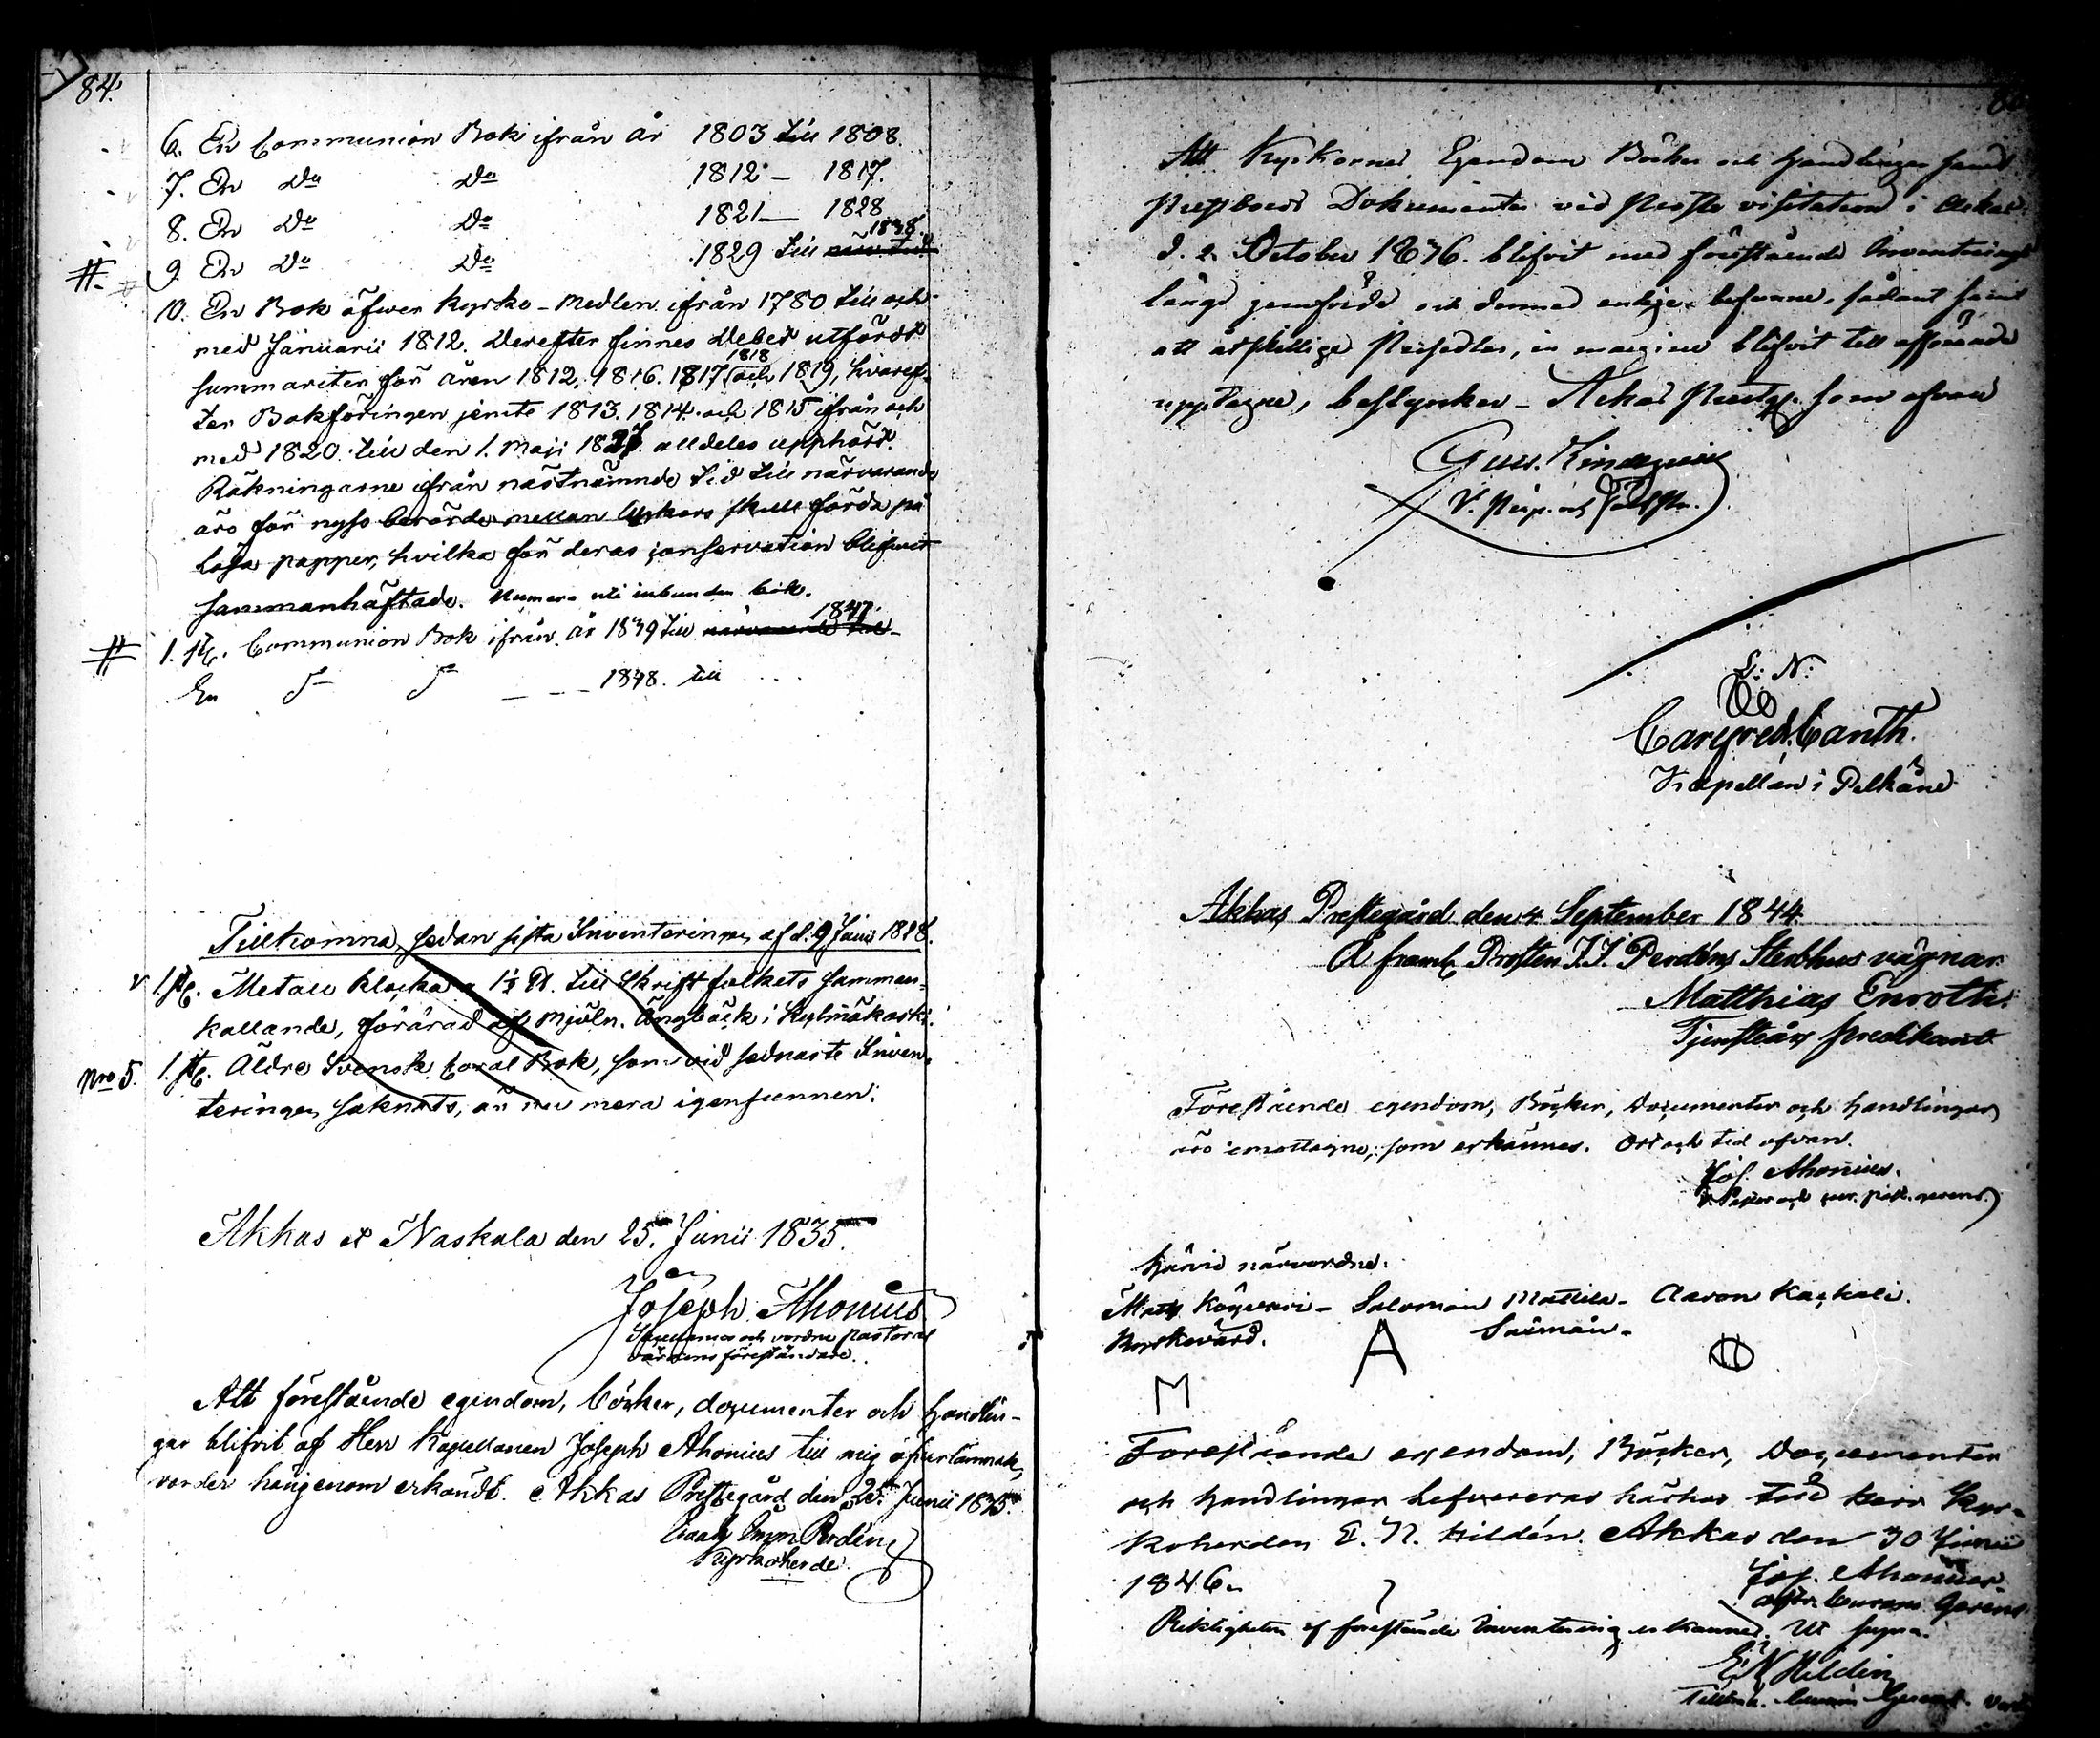 84.
6. En Communion Bok ifrån år 1803 till 1808.
7. En Do Do 1812 — 1817.
8. En Do Do 1821 — 1828
1838.
9. En Do Do 1829 till
10. En Bok öfwer Kyrko-Medlen ifrån 1780 till och
med Januarii 1812. Derefter finnes Debet utfördt
1818
summariter för åren 1812. 1816. 1817 och 1819, hvaref-
ter Bokföringen jemte 1813. 1814 och 1815 ifrån och
med 1820 till den 1. Maji 1827. alldeles upphördt.
Räkningarne ifrån nästnämnde tid till närvarande
äro för nyss berörde mellan skull förda på
lösa papper, hvilka för deras conservation blifwit
sammanhäftade. Numera uti inbunden bok.
1847.
1. st. Communion Bok ifrån år 1839 till närvarande tid
En 1848. till
Tillkomna sedan sista Inventeringen af d. 9 Junii 1828.
v 1. st. Metall klocka 1½ till Skriftfolkets samman-
kallande, förärad af Mjöln. Ängbäck i
Nro 5. 1. st. Äldre Svensk Coral Bok, som vid sednaste Inven-
teringen saknats, är nu mera igenfunnen.
Akkas et Naskala den 25. Junii 1835.
Joseph Ahonius
och vordne Pastoral
vårdens föreståndare.
Att förestående egendom, böcker, documenter och handlin-
gar blifvit af Herr Kapellanen Joseph Ahonius till mig öfverlämnade,
varder härigenom erkändt. Akkas Prestegård den 25. Junii 1835.
Perdén
Kyrkoherde
Att Kyrkornes Egendom Böcker och Handlingar samt
Dokumenter vid visitation i
d. 2 October 1836. blifvit med förestående Inventerings
längd jemförde och dermed enlige befunne, sådant samt
att åtskillige, in margine blifvit till afförande
upptagne, bestyrker — Akkas som ofvan
Gust.
V. och
L: N:
Canth.
Kapellan i Pelkäne
Akkas Prestegård den 4. September 1844.
Å framl. Prosten J. J. Perdéns Sterbhus vägnar
Matthias Enroth
Tjenstgör Predikant
Förestående egendom, Böcker, Documenter och Handlingar
äro emottagne, som erkännes. Ort och tid ofvan.
Jos. Ahonius.
Härvid närvordne:
Matts — Salomon Mattila — Aaron
Kyrkovärd. Sexmän.
A
M
Förestående egendom, Böcker, Documenter
och Handlingar lefvereras härhos till Herr Kyr-
koherden E. N. Hildén. Akkas den 30 Junii
1846.
Jos. Ahonius.
Riktigheten af förestående Inventering erkännes. Ut supra.
E N Hildén